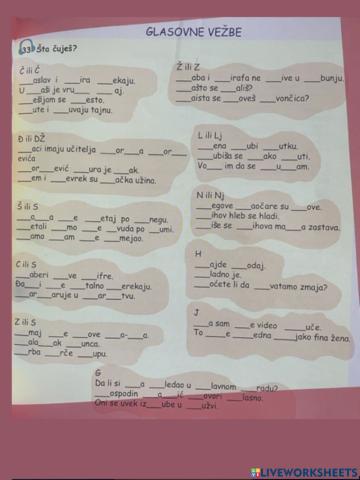 GLASOVNE VEŽBE
33. Šta čuješ?
Č ili Ć
___aslav i ___ira ___ekaju.
U ___aši je vru___ ___aj.
___ešljam se ___esto.
___ute i ___uvaju tajnu.
Ž ili Z
___aba i ___irafa ne ___ive u ___bunju.
___ašto se ___ališ?
___aista se ___oveš ___vončica?
Đ ili DŽ
___aci imaju učitelja ___or___a ___or___
evića
___or___ević ___ura je ___ak.
___em i ___evrek su ___ačka užina.
L ili Lj
___ena ___ubi ___utku.
___ubiša se ___ako ___uti.
Vo___im da se ___u___am.
Š ili S
___a___a ___e ___etaj po ___negu.
___etali ___mo ___e ___vuda po ___umi.
___amo ___am ___e ___mejao.
N ili Nj
___egove ___aočare su ___ove.
___ihov hleb se hladi.
___iše se ___ihova ma___a zastava.
H
___ajde ___odaj.
___ladno je.
___oćete li da ___vatamo zmaja?
C ili S
___aberi ___ve ___ifre.
Đa___i ___e ___talno ___erekaju.
___ar___aruje u ___ar___tvu.
J
___a sam ___e video ___uče.
To ___e ___edna ___jako fina žena.
Z ili S
___maj ___e ___ove ___a-___a.
___ala___ak ___unca.
___rba ___rče ___upu.
G
Da li si ___a ___ledao u ___lavnom ___radu?
___ospodin ___a___ić ___ovori ___lasno.
Oni se uvek iz___ube u ___užvi.
LIVEWORKSHEETS